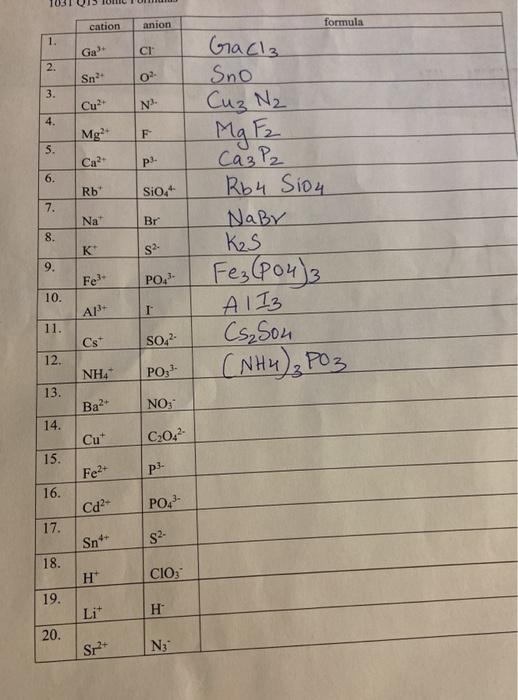 1031 Q15 Ionic Formulas
cation anion formula
1. Ga³⁺ Cl⁻ GaCl₃
2. Sn²⁺ O²⁻ SnO
3. Cu²⁺ N³⁻ Cu₃ N₂
4. Mg²⁺ F⁻ Mg F₂
5. Ca²⁺ P³⁻ Ca₃ P₂
6. Rb⁺ SiO₄⁴⁻ Rb₄ SiO₄
7. Na⁺ Br⁻ NaBr
8. K⁺ S²⁻ K₂S
9. Fe³⁺ PO₄³⁻ Fe₃(PO₄)₃
10. Al³⁺ I⁻ Al I₃
11. Cs⁺ SO₄²⁻ Cs₂SO₄
12. NH₄⁺ PO₃³⁻ (NH₄)₃ PO₃
13. Ba²⁺ NO₃⁻
14. Cu⁺ C₂O₄²⁻
15. Fe²⁺ P³⁻
16. Cd²⁺ PO₄³⁻
17. Sn⁴⁺ S²⁻
18. H⁺ ClO₃⁻
19. Li⁺ H⁻
20. Sr²⁺ N₃⁻